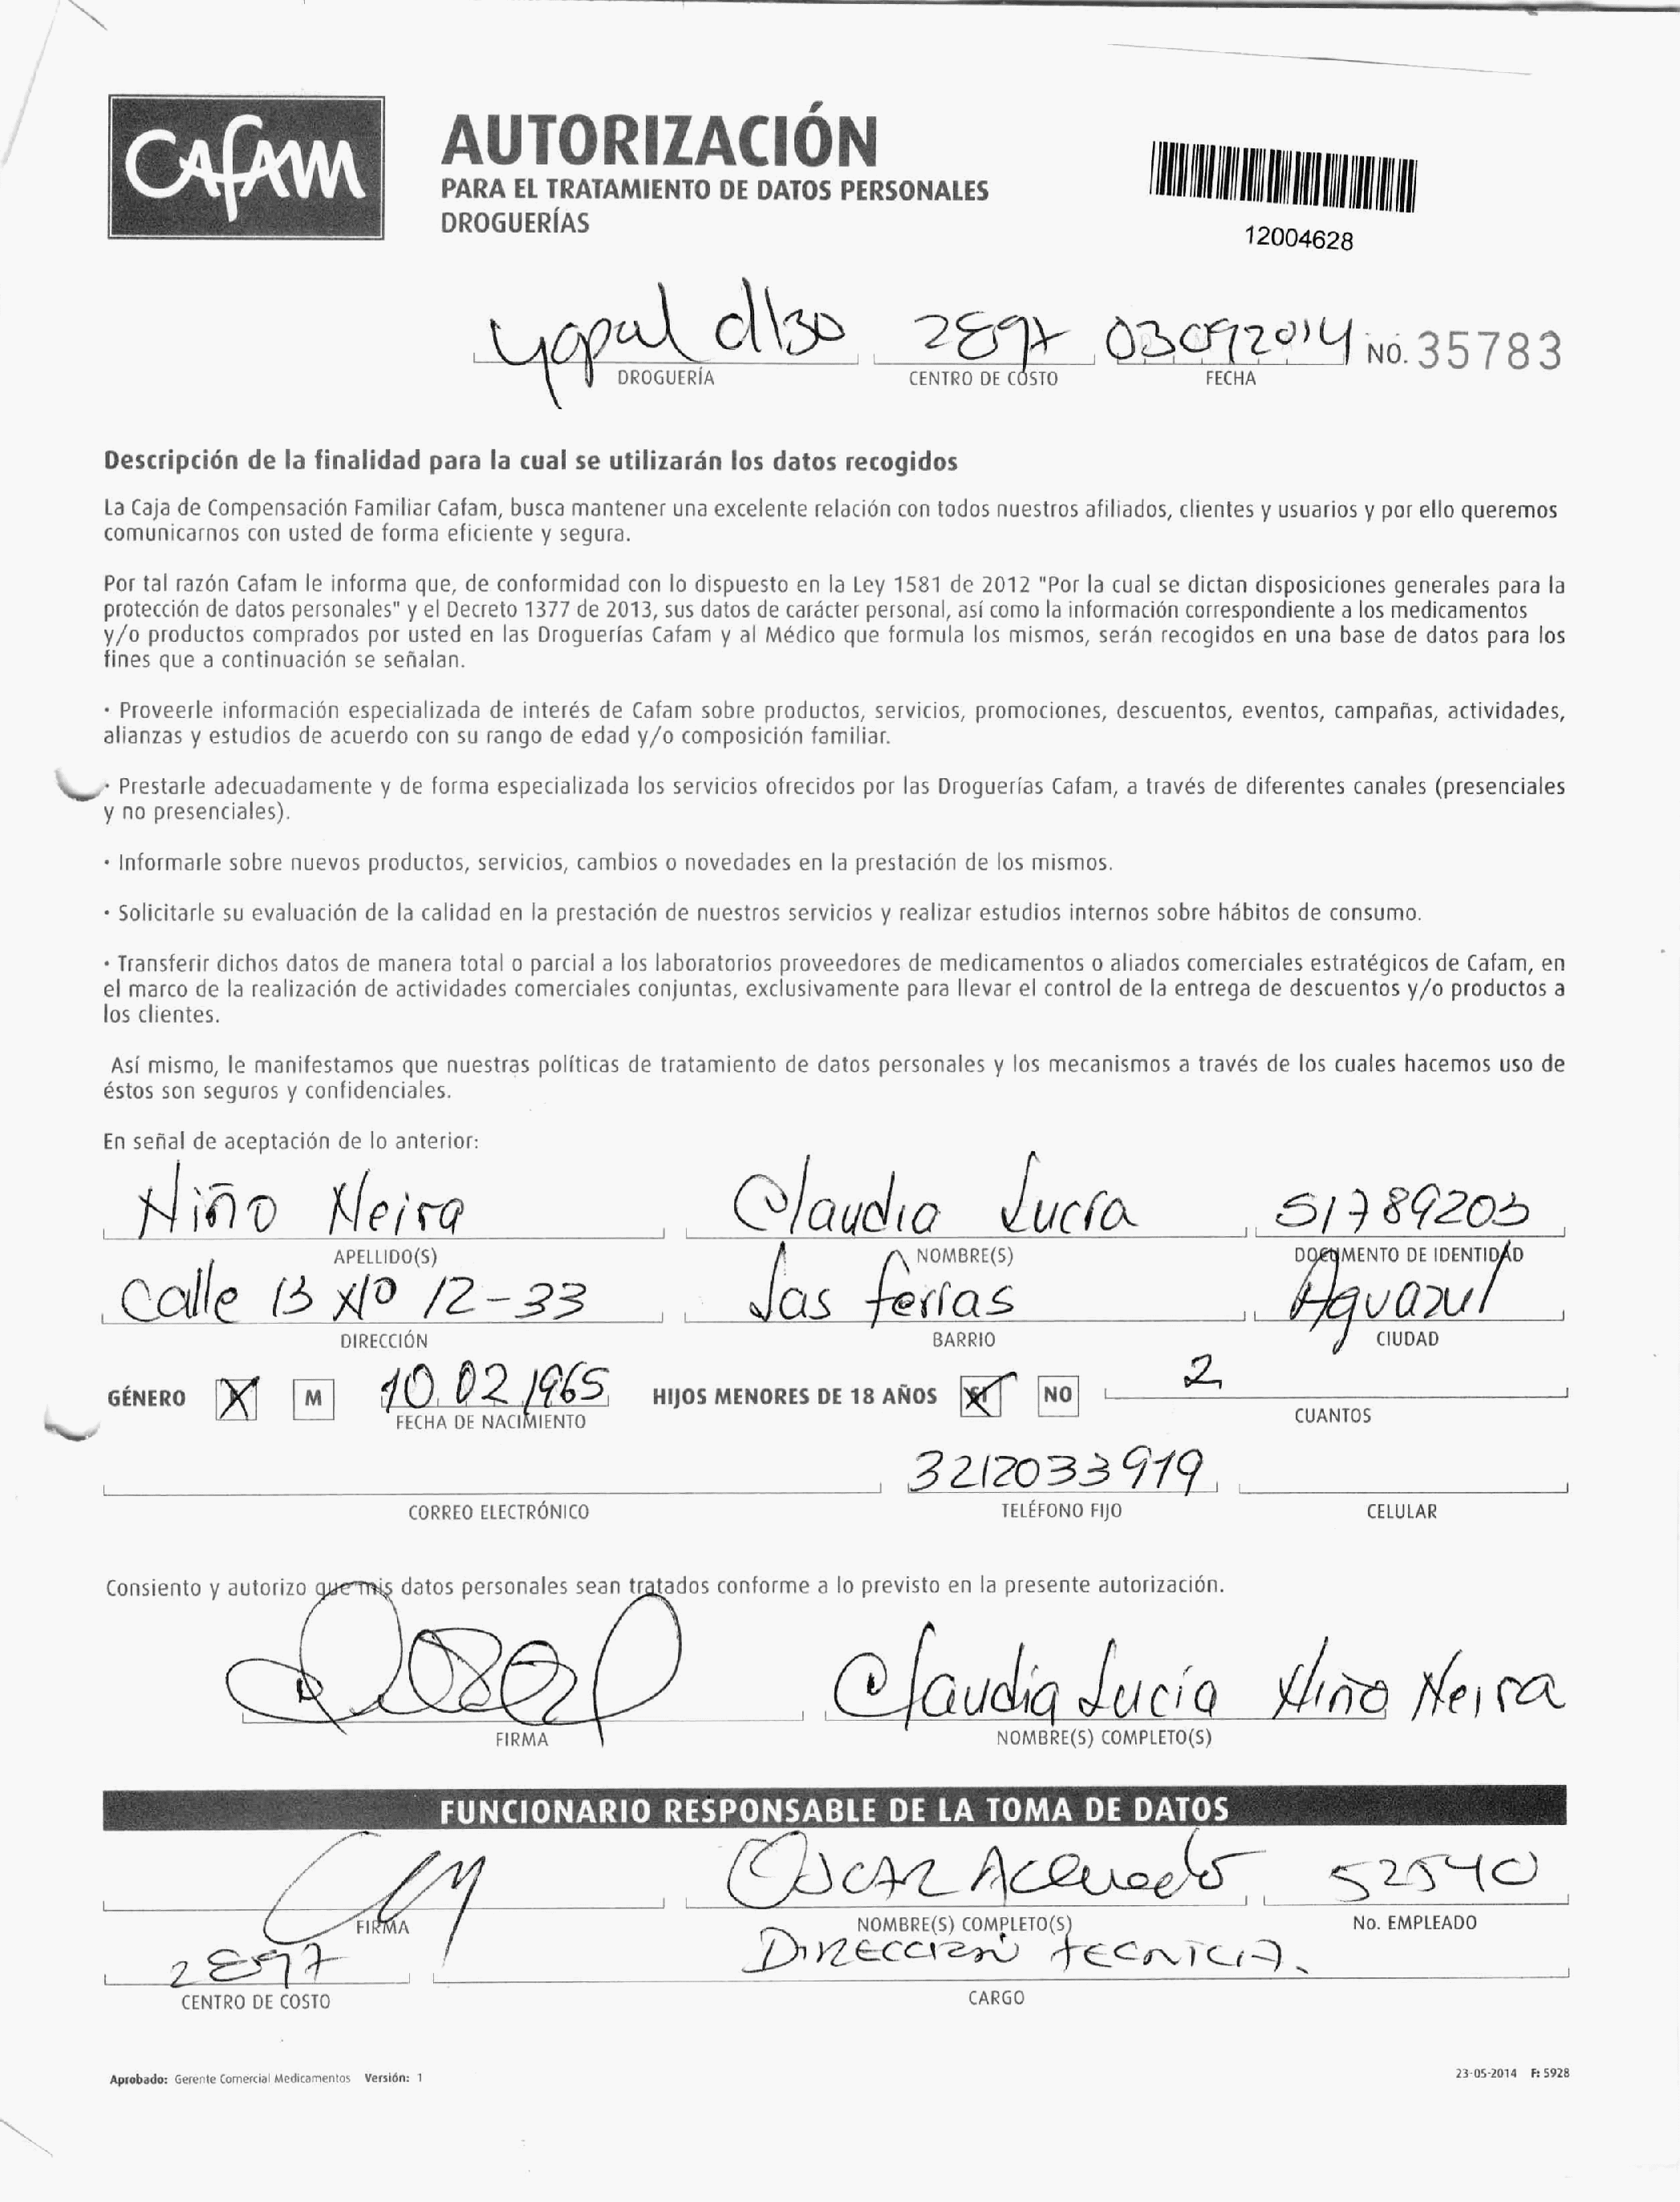 CAFAM
AUTORIZACIÓN
PARA EL TRATAMIENTO DE DATOS PERSONALES
DROGUERÍAS
12004628
yopal d130 2897 03092014 NO. 35783
DROGUERÍA CENTRO DE COSTO FECHA
Descripción de la finalidad para la cual se utilizarán los datos recogidos
La Caja de Compensación Familiar Cafam, busca mantener una excelente relación con todos nuestros afiliados, clientes y usuarios y por ello queremos
comunicarnos con usted de forma eficiente y segura.
Por tal razón Cafam le informa que, de conformidad con lo dispuesto en la Ley 1581 de 2012 "Por la cual se dictan disposiciones generales para la
protección de datos personales" y el Decreto 1377 de 2013, sus datos de carácter personal, así como la información correspondiente a los medicamentos
y/o productos comprados por usted en las Droguerías Cafam y al Médico que formula los mismos, serán recogidos en una base de datos para los
fines que a continuación se señalan.
· Proveerle información especializada de interés de Cafam sobre productos, servicios, promociones, descuentos, eventos, campañas, actividades,
alianzas y estudios de acuerdo con su rango de edad y/o composición familiar.
· Prestarle adecuadamente y de forma especializada los servicios ofrecidos por las Droguerías Cafam, a través de diferentes canales (presenciales
y no presenciales).
· Informarle sobre nuevos productos, servicios, cambios o novedades en la prestación de los mismos.
· Solicitarle su evaluación de la calidad en la prestación de nuestros servicios y realizar estudios internos sobre hábitos de consumo.
· Transferir dichos datos de manera total o parcial a los laboratorios proveedores de medicamentos o aliados comerciales estratégicos de Cafam, en
el marco de la realización de actividades comerciales conjuntas, exclusivamente para llevar el control de la entrega de descuentos y/o productos a
los clientes.
Así mismo, le manifestamos que nuestras políticas de tratamiento de datos personales y los mecanismos a través de los cuales hacemos uso de
éstos son seguros y confidenciales.
En señal de aceptación de lo anterior:
Niño Neira Claudia Lucía 51789203
APELLIDO(S) NOMBRE(S) DOCUMENTO DE IDENTIDAD
Calle 13 No 12-33 Las ferias Aguazul
DIRECCIÓN BARRIO CIUDAD
GÉNERO X M 10 02 1965 HIJOS MENORES DE 18 AÑOS SI NO 2
FECHA DE NACIMIENTO CUANTOS
3212033919
CORREO ELECTRÓNICO TELÉFONO FIJO CELULAR
Consiento y autorizo que mis datos personales sean tratados conforme a lo previsto en la presente autorización.
Claudia Lucía Niño Neira
FIRMA NOMBRE(S) COMPLETO(S)
FUNCIONARIO RESPONSABLE DE LA TOMA DE DATOS
OSCAR Acevedo 52540
FIRMA NOMBRE(S) COMPLETO(S) No. EMPLEADO
2897 DIRECCION TECNICA.
CENTRO DE COSTO CARGO
Aprobado: Gerente Comercial Medicamentos Versión: 1 23-05-2014 F: 5928